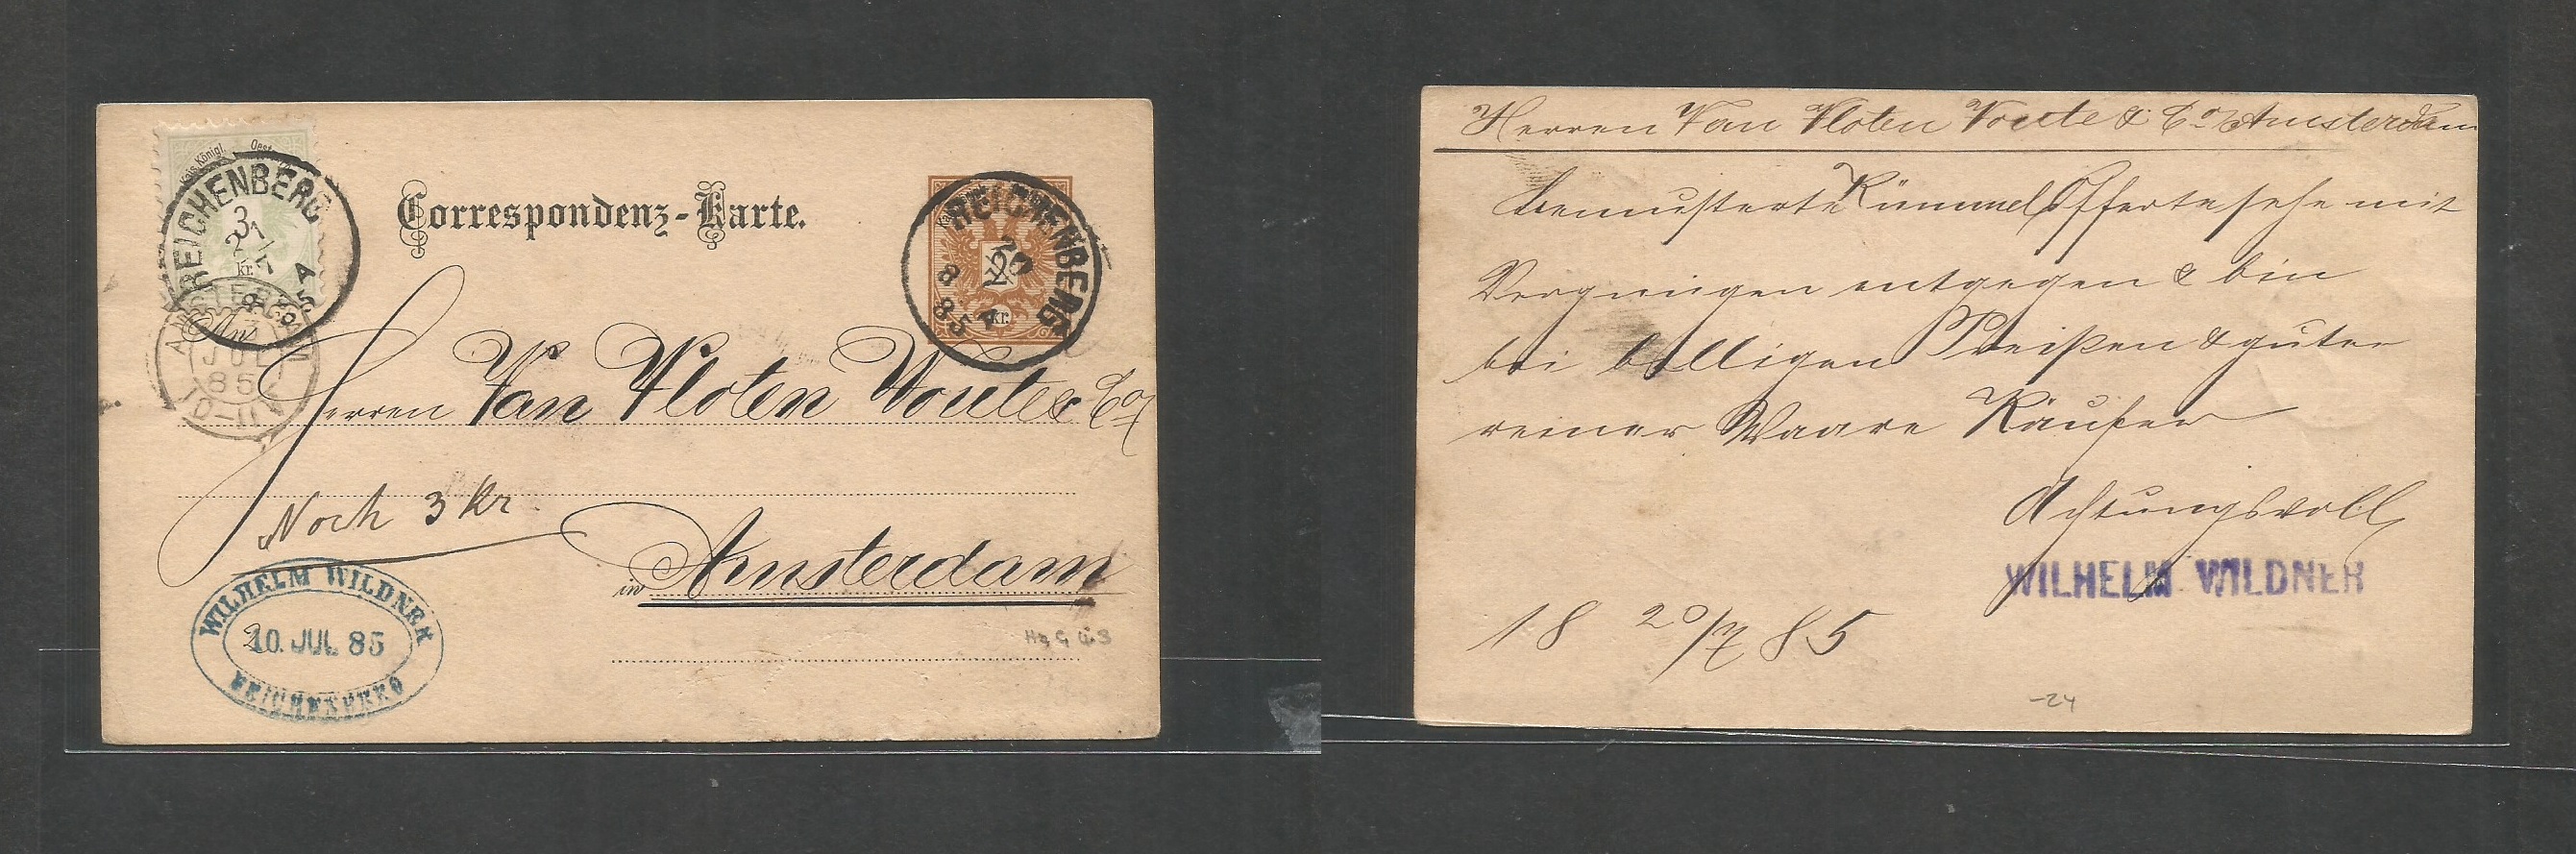 Kais. Königl. Oest
kr.
REICHENBERG
3
21
7
85
4
AMSTERDAM
JUL
85
10-11V
Correspondenz-Karte.
REICHENBERG
20
7
85
4
kr.
An
Herren Van Vloten Voute & Co
Noch 3 Kr.
in Amsterdam
WILHELM WILDNER
20. JUL 85
REICHENBERG
Herren Van Vloten Voute & Co Amsterdam
bemusterte Kümmel Offerte sehe mit
Vergnügen entgegen & bin
bei billigen Preißen & guter
reiner Waare Käufer
Achtungsvoll
WILHELM WILDNER
18 20/7 85
-24